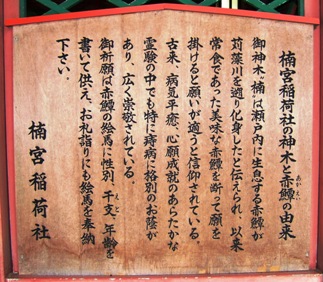 楠宮稲荷社の神木と赤鱏の由来
あかえい
御神木、楠は瀬戸内に生息する赤鱏が
苅藻川を遡り化身したと伝えられ、以来
常食であった美味な赤鱏を断って願を
掛けると願いが適うと信仰されている。
古来、病気平癒、心願成就のあらたかな
霊験の中でも特に痔病に格別のお蔭が
あり、広く崇敬されている。
御祈願は赤鱏の絵馬に性別、干支、年齢を
えと
書いて供え、お礼詣りにも絵馬を奉納
下さい。
楠宮稲荷社